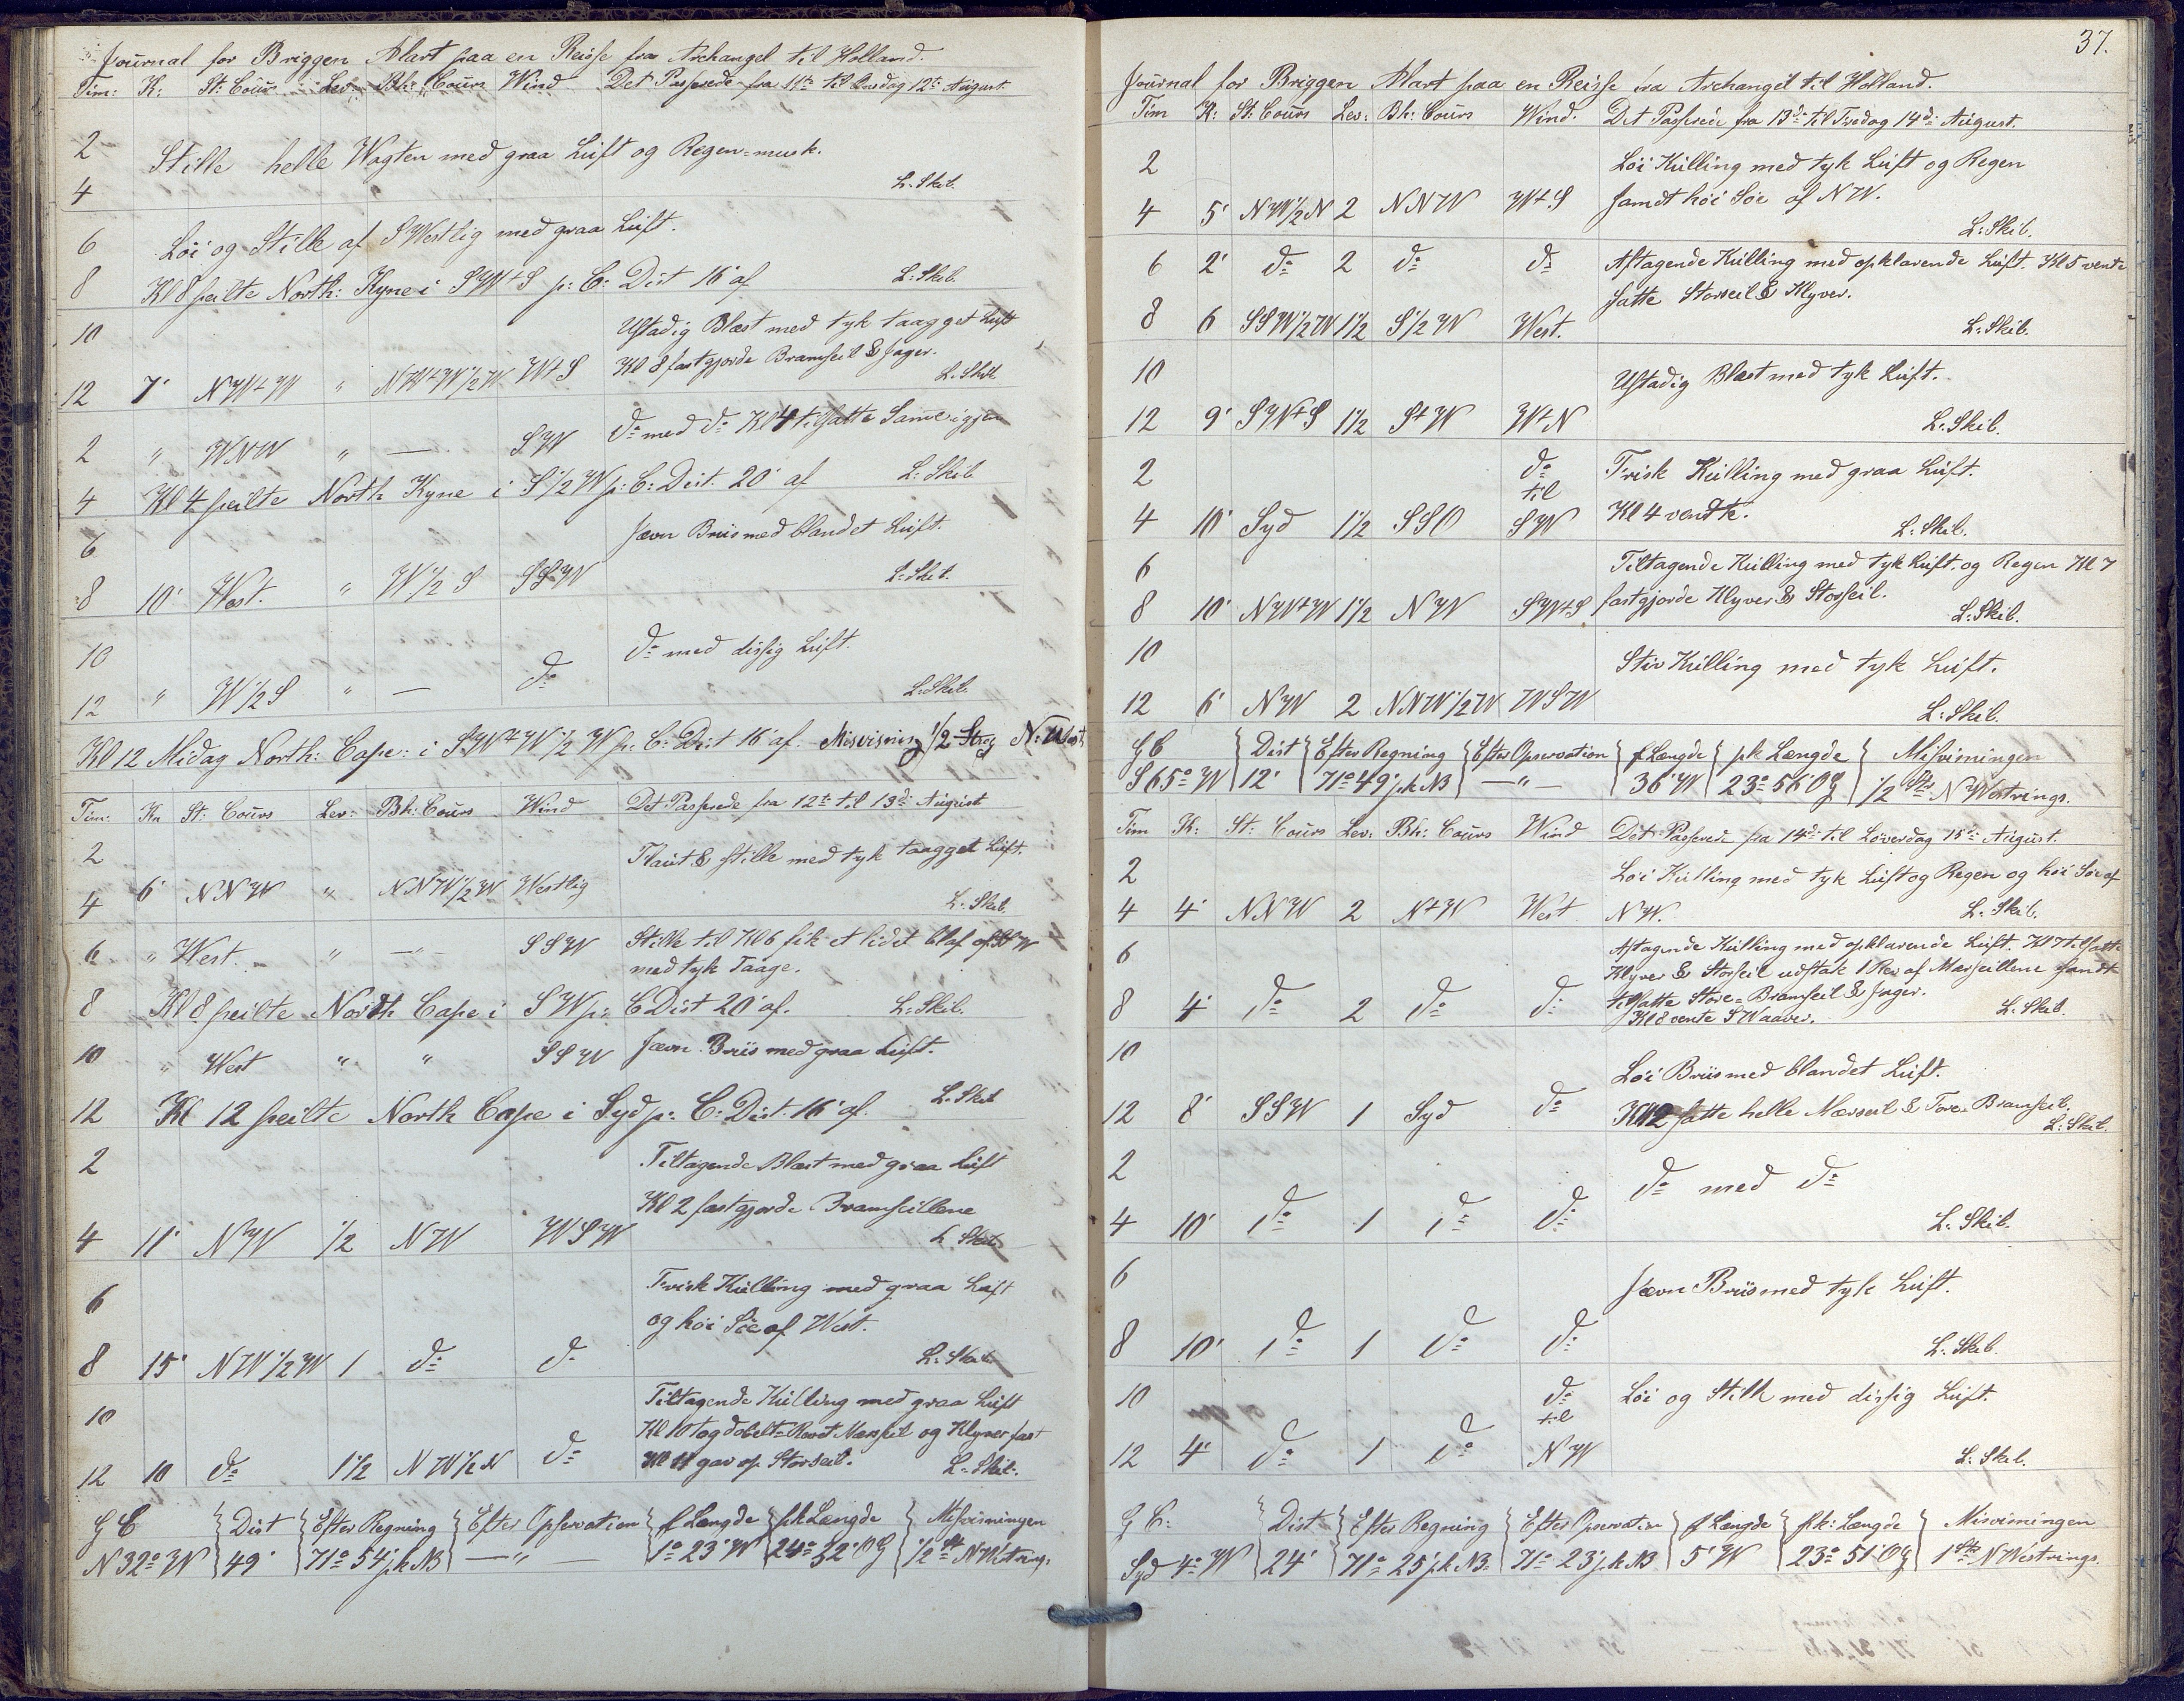 Journal for Briggen Alart paa en Reisse fra Archangel til Holland.
Tim: K: St: Coürs Lev: Bh: Coürs Wind Det Passerede fra 11te til Onsdag 12te Aügust.
2
Stille helle Wagten med graa Lüft og Regen=musk.
4 L. Skib.
6 Löi og Stille af SWestlig med graa Lüft.
8 Kl 8 peilte North: Kyne i SW+S p: C: Dist 16' af L: Skib.
10 Ustadig Blæst med tyk taagget Lüft
12 7' NW+W " NW+W1/2W W+S Kl 8 fastgjorde Bramseil & Jager. L. Skib
2 " WNW " — SW do med do Kl 4 tilsatte Same igjen
4 Kl 4 peilte North Kyne i S1/2W p: C: Dist. 20' af L: Skib
6 Jævn Briis med blandet Lüft.
8 10' West. " W1/2S SSW L: Skib.
10 do med dissig Lüft.
12 " W1/2S " — do L: Skib.
Kl 12 Midag North: Cape: i SW+W1/2W p: C: Dist 16' af. Misvisning 1/2 Streg N: West
Tim: Kn St: Coürs Lev: Bh: Coürs Wind Det Passerede fra 12te til 13de Aügüst
2 Flaüt & stille med tyk taagget Lüft.
4 6' NNW " NNW1/2W Westlig L. Skib.
6 " West. " —"— SSW Stille til Kl 6 fik et lidet blaf af SW
med tyk Taage.
8 Kl 8 peilte North Cape i SW p: C Dist 20' af. L: Skib.
10 " West " " SSW Jævn Briis med graa Lüft.
12 Kl 12 peilte North Cape i Syd p: C: Dist. 16' af. L: Skib
2 Tiltagende Blæst med graa Lüft
Kl 2 fastgjorde Bramseillene
4 11' NW 1/2 NW WSW L. Skib
6 Frisk Külling med graa Lüft
og höi Söe af West.
8 15' NW1/2W 1 do do L: Skib
10 Tiltagende Külling med graa Lüft
Kl 10 tog dobelt=Revet Mærseil og Klyver fast
12 10 do 1 1/2 NW1/2N do Kl 11 gav op Storseil. L: Skib.
G C Dist Efter Regning Efter Opservation f Længde p.k Længde Misvisningen
N 32° W 49' 71° 54' p.k NB —"— 1° 23' W 24° 32' OG 1/2 St NWestrings
37.
Journal for Briggen Alart paa en Reisse fra Archangel til Holland.
Tim K: St: Coürs Lev: Bh: Coürs Wind. Det Passerede fra 13de til Fredag 14de Aügust.
2 Löi Külling med tyk Lüft og Regen
4 5' NW1/2N 2 NNW W+S samdt höi Söe af NW.
L: Skib.
6 2' do 2 do do Aftagende Külling med opklarende Lüft. Kl 5 vente
satte Storseil & Klyver.
8 6 SSW1/2W 1 1/2 S1/2W West. L: Skib.
10 Ustadig Blæst med tyk Lüft.
12 9' SW+S 1 1/2 S+W W+N L: Skib.
2 do Frisk Külling med graa Lüft.
til
4 10' Syd 1 1/2 SSO SW Kl 4 vendte. L: Skib.
6 Tiltagende Külling med tyk Lüft og Regen Kl 7
8 10' NW+W 1 1/2 NW SW+S fastgjorde Klyver & Storseil. L: Skib.
10 Stiv Külling med tyk Lüft.
12 6' NW 2 NNW1/2W WSW L: Skib.
G C Dist Efter Regning Efter Opservation f Længde p.k Længde Misvisningen
S 65° W 12' 71° 49' p.k NB —"— 36' W 23° 56' OG 1/2 Str NWestrings.
Tim K: St: Coürs Lev: Bh: Coürs Wind Det Passerede fra 14de til Löverdag 15de Aügüst.
2 Löi Külling med tyk Lüft og Regen og höi Söe af
4 4' NNW 2 N+W West NW. L: Skib.
6 Aftagende Külling med opklarende Lüft. Kl 7 tilsatte
Klyver & Storseil udstak 1 Rev af Merseillene samdt
8 4' do 2 do do tilsatte Store=Bramseil & Jager. L: Skib.
Kl 8 vente SWaaver.
10 Löi Briis med blandet Lüft.
12 8' SSW 1 Syd do Kl 12 satte helle Mærseil & Fore=Bramseil.
L: Skib.
2 do med do
4 10' do 1 do do L: Skib.
6 Jævn Briis med tyk Lüft.
8 10' do 1 do do L: Skib.
10 do Löi og Stille med dissig Lüft.
til
12 4' do 1 do NW L: Skib.
G C: Dist Efter Regning Efter Opservation f Længde p.k: Længde Misvisningen
Syd 4° W 24' 71° 25' p.k NB 71° 23' p.k NB 5' W 23° 51' OG 1 Str NWestrings.